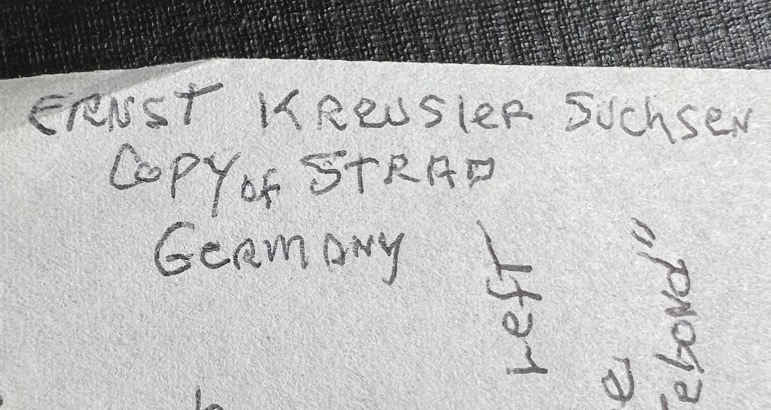 ERNST KReuSleR SuchseN
Copy of STRAD
GeRMANY
Left